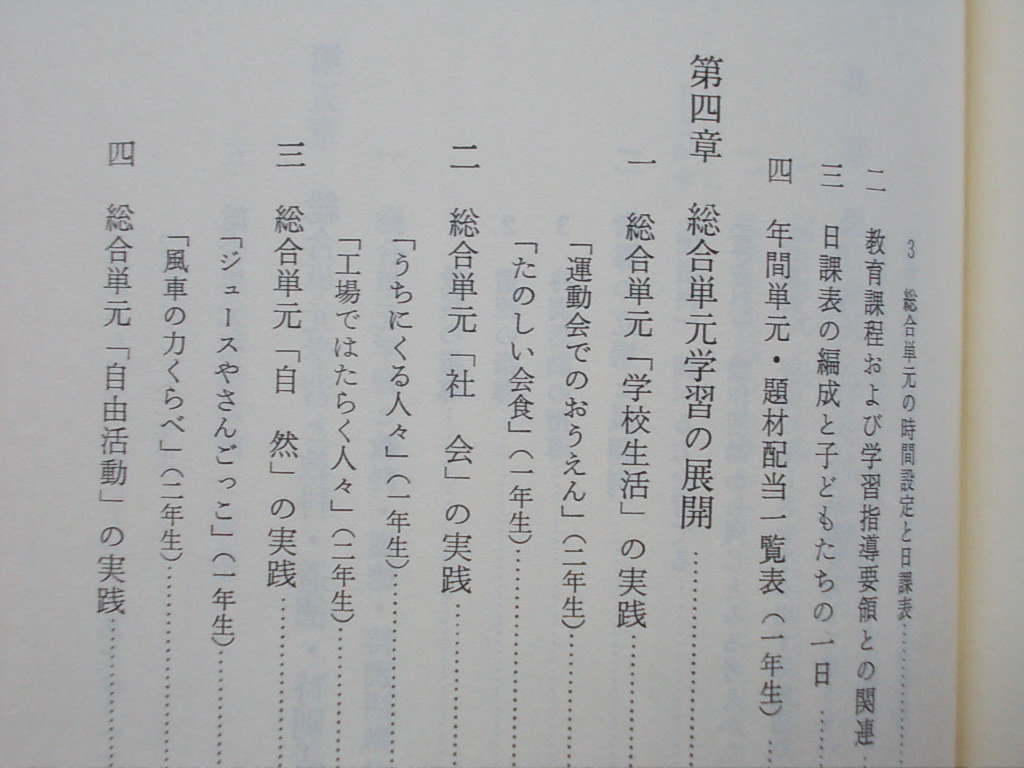 3 総合単元の時間設定と日課表…………
二 教育課程および学習指導要領との関連
三 日課表の編成と子どもたちの一日……
四 年間単元・題材配当一覧表（一年生）…
第四章 総合単元学習の展開…………
一 総合単元「学校生活」の実践…………
「運動会でのおうえん」（二年生）…………
「たのしい会食」（一年生）…………
二 総合単元「社 会」の実践…………
「うちにくる人々」（一年生）…………
「工場ではたらく人々」（二年生）…………
三 総合単元「自 然」の実践…………
「ジュースやさんごっこ」（一年生）…………
「風車の力くらべ」（二年生）…………
四 総合単元「自由活動」の実践…………